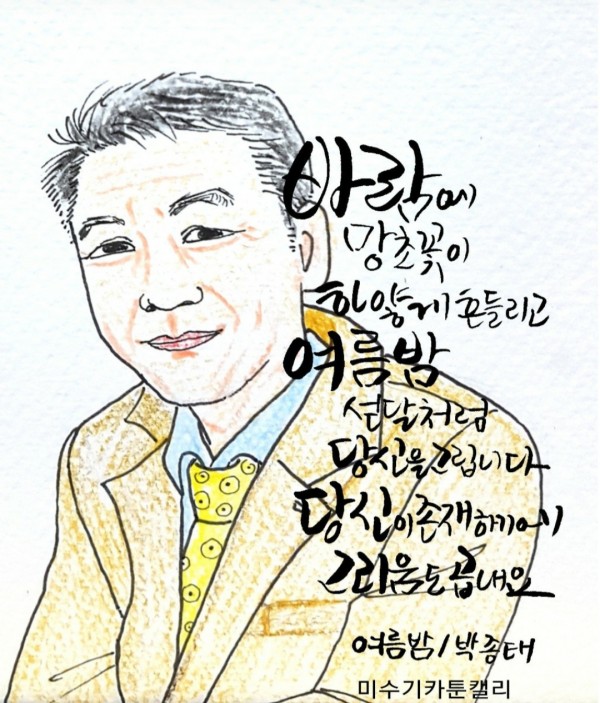 바람에
망초꽃이
하얗게 흔들리고
여름밤
섣달처럼
당신을 그립니다
당신이 존재하기에
그리움도 곱네요
여름밤/박종태
미수기카툰캘리